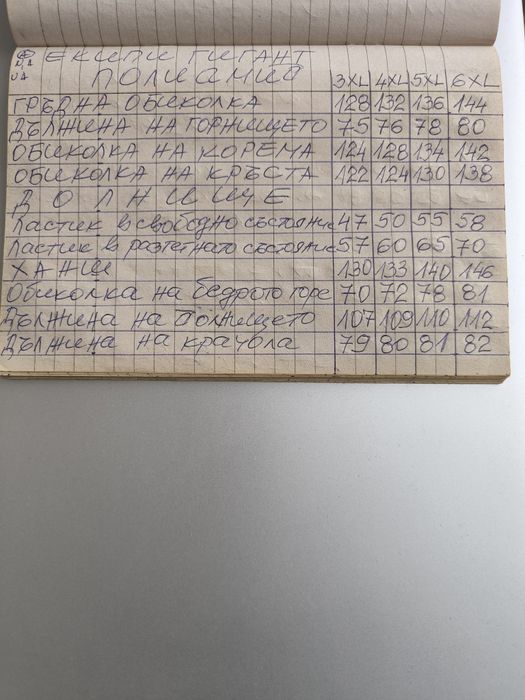 ЕКИПИ ГИГАНТ
ПОЛИАМИД 3XL 4XL 5XL 6XL
ГРЪДНА ОБИКОЛКА 128 132 136 144
ДЪЛЖИНА НА ГОРНИЩЕТО 75 76 78 80
ОБИКОЛКА НА КОРЕМА 124 128 134 142
ОБИКОЛКА НА КРЪСТА 122 124 130 138
ДОЛНИЩЕ
Ластик в свободно състояние 47 50 55 58
Ластик в разтегнато състояние 57 60 65 70
ХАНШ 130 133 140 146
Обиколка на бедрото горе 70 72 78 81
Дължина на долнището 107 109 110 112
Дължина на крачола 79 80 81 82